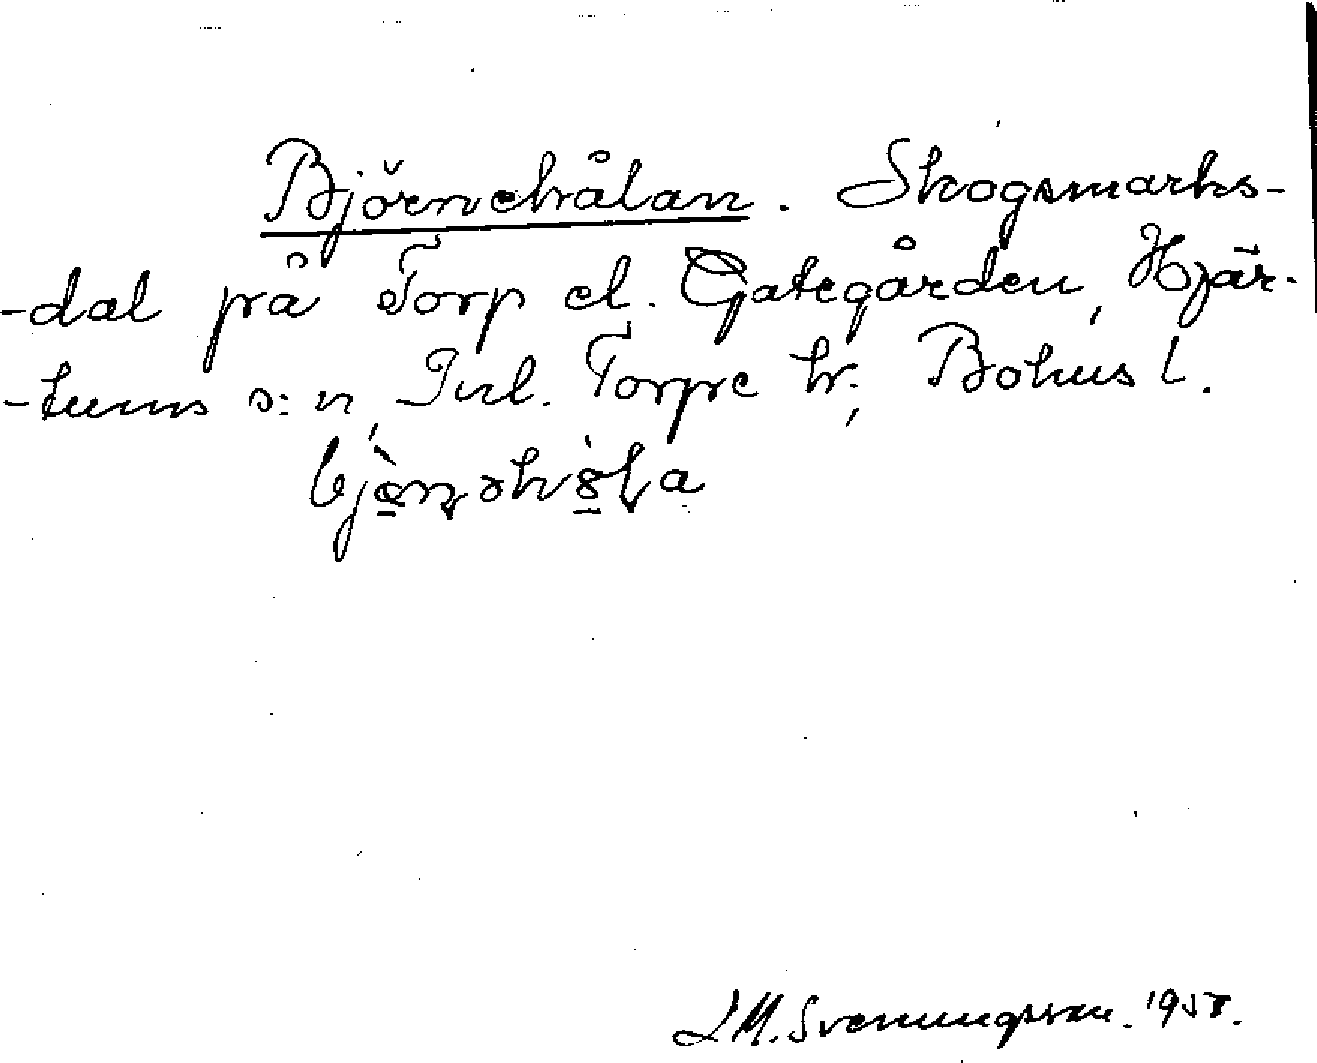 Björnehålan. Skogsmarks-
-dal på Torp el. Gategården, Hjär-
-tums s:n, Inl. Torpe hr, Bohusl.
L M. Svenungsson. 1958.